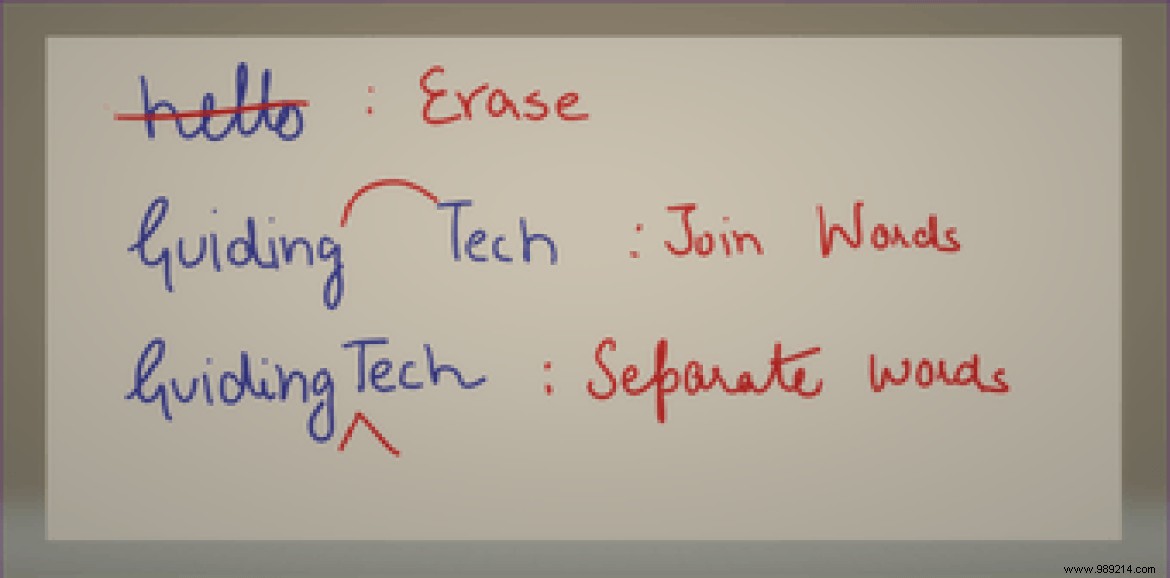 hello : Erase
Guiding Tech : Join Words
GuidingTech : Separate words
www.989214.com